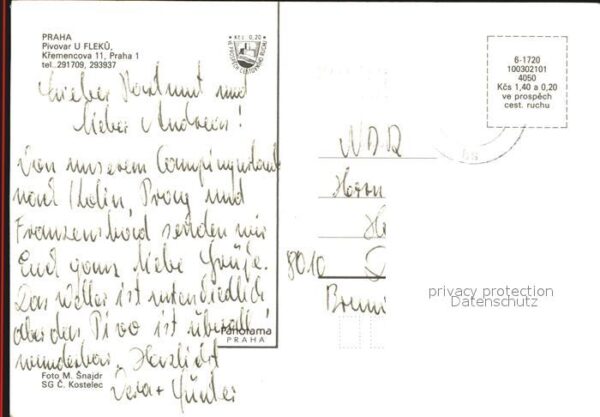 PRAHA
Pivovar U FLEKŮ,
Křemencova 11, Praha 1
tel. 291709, 293937
Kčs 0,20
VE PROSPĚCH CESTOVNÍHO RUCHU
6-1720
100302101
4050
Kčs 1,40 a 0,20
ve prospěch
cest. ruchu
Lieber Horst und
lieber Andreas!
Von unserem Campingurlaub
nach Kolin, Prag und
Franzensbad senden wir
Euch ganz liebe Grüße.
Das Wetter ist unterschiedlich
aber das Pivo ist überall
wunderbar. Herzlichst
Vera + Günter
NDR
Herrn
H
8010
Bruni
privacy protection
Datenschutz
Panorama
PRAHA
Foto M. Šnajdr
SG Č. Kostelec